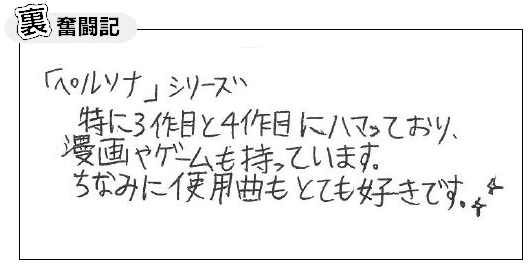 裏奮闘記
「ペルソナ」シリーズ
特に3作目と4作目にハマっており、
漫画やゲームも持っています。
ちなみに使用曲もとても好きです。